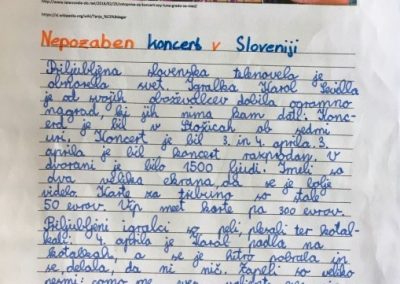 Nepozaben koncert v Sloveniji
Priljubljena slovenska telenovela je
obnorila svet. Igralka Karol Sevilla
je od svojih oboževalcev dobila ogromno
nagrad, ki jih nima kam dati. Konc-
ert je bil v Stožicah ob sedmi
uri. Koncert je bil 3. in 4. aprila. 3.
aprila je bil koncert razprodan. V
dvorani je bilo 1500 ljudi. Imeli so
dva velika ekrana, da se je bolje
videlo. Karte za tribuno so stale
50 evrov. Vip meet karte pa 300 evrov.
Priljubljeni igralci so peli, plesali ter kotal-
kali. 4. aprila je Karol padla na
kotalkah, a se je hitro pobrala in
se delala, da ni nič. Zapeli so veliko
pesmi: como me